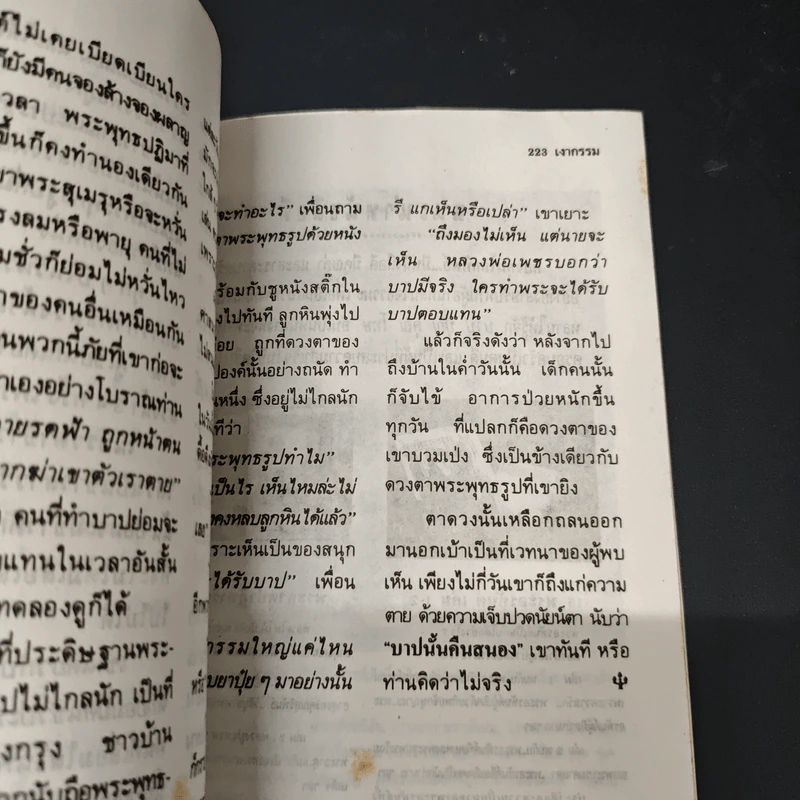 ด้ไม่เคยเบียดเบียนใคร
ก็ยังมีคนจองล้างจองผลาญ
วลา พระพุทธปฏิมาที่
ขึ้นก็คงทำนองเดียวกัน
ขาพระสุเมรุหรือจะหวั่น
รงลมหรือพายุ คนที่ไม่
มชั่วก็ย่อมไม่หวั่นไหว
ของคนอื่นเหมือนกัน
นพวกนี้ภัยที่เขาก่อจะ
าเองอย่างโบราณท่าน
ายรดฟ้า ถูกหน้าตน
ากฆ่าเขาตัวเราตาย"
คนที่ทำบาปย่อมจะ
แทนในเวลาอันสั้น
ทดลองดูก็ได้
ที่ประดิษฐานพระ-
ปไม่ไกลนัก เป็นที่
งกรุง ชาวบ้าน
กนับถือพระพุทธ-
223 เงากรรม
จะทำอะไร" เพื่อนถาม
าพระพุทธรูปด้วยหนัง
ร้อมกับชูหนังสติ๊กใน
งไปทันที ลูกหินพุ่งไป
อย ถูกที่ดวงตาของ
ปองค์นั้นอย่างถนัด ทำ
นหนึ่ง ซึ่งอยู่ไม่ไกลนัก
ที่ว่า
ระพุทธรูปทำไม"
เป็นไร เห็นไหมล่ะไม่
คงหลบลูกหินได้แล้ว"
ราะเห็นเป็นของสนุก
ได้รับบาป" เพื่อน
กรรมใหญ่แค่ไหน
บยาปุ๋ย ๆ มาอย่างนั้น
รึ แกเห็นหรือเปล่า" เขาเยาะ
"ถึงมองไม่เห็น แต่นายจะ
เห็น หลวงพ่อเพชรบอกว่า
บาปมีจริง ใครทำพระจะได้รับ
บาปตอบแทน"
แล้วก็จริงดังว่า หลังจากไป
ถึงบ้านในค่ำวันนั้น เด็กคนนั้น
ก็จับไข้ อาการป่วยหนักขึ้น
ทุกวัน ที่แปลกก็คือดวงตาของ
เขาบวมเป่ง ซึ่งเป็นข้างเดียวกับ
ดวงตาพระพุทธรูปที่เขายิง
ตาดวงนั้นเหลือกถลนออก
มานอกเบ้าเป็นที่เวทนาของผู้พบ
เห็น เพียงไม่กี่วันเขาก็ถึงแก่ความ
ตาย ด้วยความเจ็บปวดนัยน์ตา นับว่า
"บาปนั้นคืนสนอง" เขาทันที หรือ
ท่านคิดว่าไม่จริง